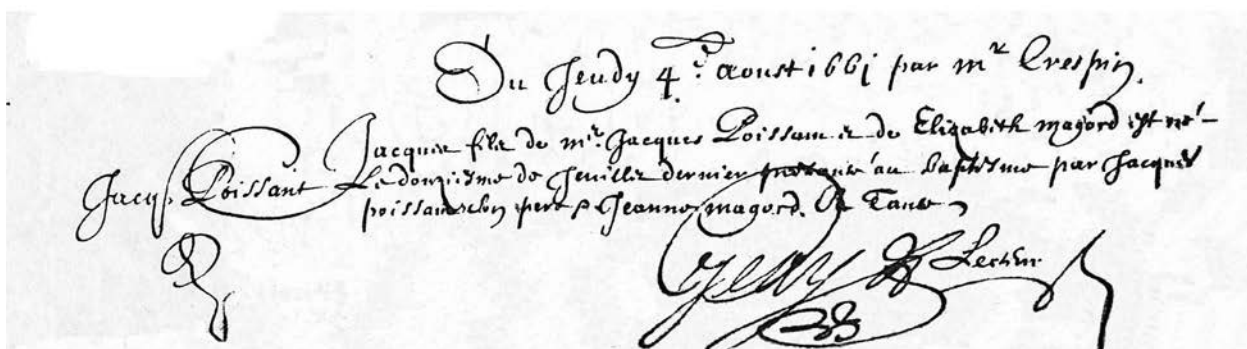 Du Jeudy 4e. Aoust 1661 par mr Crespin.
Jacques filz de mr. Jacques Poissant & de Elizabeth magord est né
Jacq. Poissant Le douziesme de Jeuillet dernier presenté au baptesme par Jacques
poissant son pere & Jeanne magord. Sa Tante
Gedy Lecteur